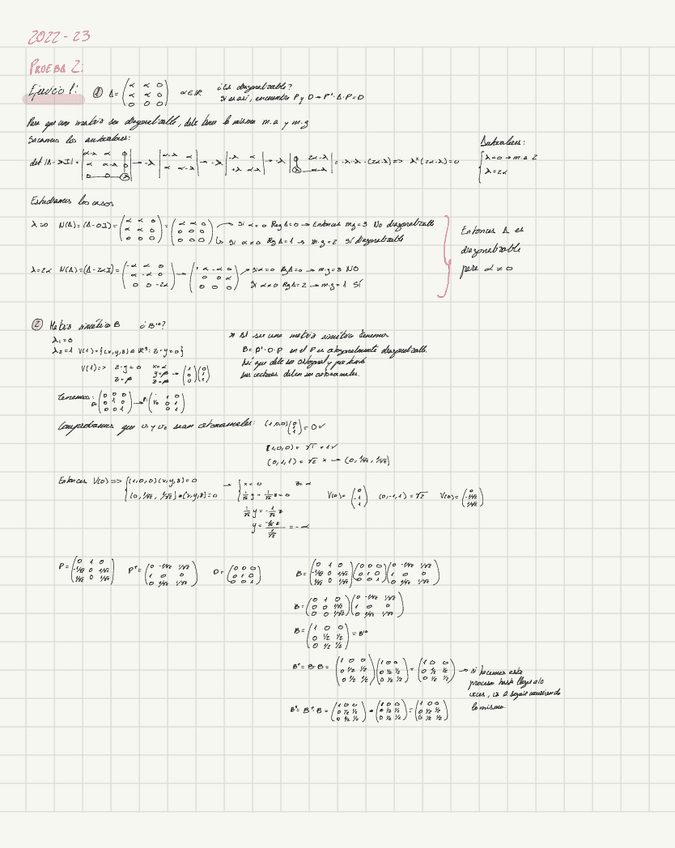 2022-23
PRUEBA 2:
Ejercicio 1: ① A = (α α 0; α α 0; 0 0 0) α∈ℝ ¿Es diagonalizable?
Si es así, encuentra P y D → P⁻¹·A·P = D
Para que una matriz sea diagonalizable, debe tener la misma m.a y m.g
Sacamos los autovalores:
Autovalores:
λ=0 → m.a 2
λ=2α
det |A-λI| = = -λ·-λ·(2α-λ) => λ²(2α-λ)=0
Estudiamos los casos
λ=0 N(A)=(A-0I) = (α α 0; α α 0; 0 0 0) = (α α 0; 0 0 0; 0 0 0)
Si α=0 RgA=0 → Entonces m.g=3 No diagonalizable
Si α≠0 RgA=1 → m.g=2 Sí diagonalizable
λ=2α N(A)=(A-2αI) = (-α α 0; α -α 0; 0 0 -2α)
Si α=0 RgA=0 → m.g=3 NO
Si α≠0 RgA=2 → m.g=1 Sí
Entonces A es
diagonalizable
para α≠0
② Matriz simétrica B ¿B¹⁰?
λ₁=0
λ₂=1 V(1)={(x,y,z)∈ℝ³: z-y=0}
V(1)=> z-y=0 x=α y=β z=β (1 0 0) (0 1 1)
* Al ser una matriz simétrica tenemos
B=Pᵗ·D·P en el P es ortogonalmente diagonalizable.
Así que debe ser ortogonal y por tanto
sus vectores deben ser ortonormales.
Tenemos: D (0 0 0; 0 1 0; 0 0 1)
Comprobamos que v₁ y v₂ sean ortonormales: (1,0,0)(0 1 1) = 0 ✓
(1,0,0) = √1 = 1 ✓
(0,1,1) = √2 x → (0, 1/√2, 1/√2)
Entonces V(0) => (1,0,0)(x,y,z)=0
(0, 1/√2, 1/√2)·(x,y,z)=0
x=0 z=α
1/√2 y = -1/√2 z
y = = -α
V(0) = (0 -1 1) (0,-1,1) = √2 V(0) = (0 -1/√2 1/√2)
P = (0 1 0; -1/√2 0 1/√2; 1/√2 0 1/√2) Pᵗ = (0 -1/√2 1/√2; 1 0 0; 0 1/√2 1/√2) D = (0 0 0; 0 1 0; 0 0 1)
B = (0 1 0; -1/√2 0 1/√2; 1/√2 0 1/√2) (0 0 0; 0 1 0; 0 0 1) (0 -1/√2 1/√2; 1 0 0; 0 1/√2 1/√2)
B = (0 1 0; 0 0 1/√2; 0 0 1/√2) (0 -1/√2 1/√2; 1 0 0; 0 1/√2 1/√2)
B = (1 0 0; 0 1/2 1/2; 0 1/2 1/2) = B¹⁰
B² = B·B = (1 0 0; 0 1/2 1/2; 0 1/2 1/2) (1 0 0; 0 1/2 1/2; 0 1/2 1/2) = (1 0 0; 0 1/2 1/2; 0 1/2 1/2)
→ si hacemos este
proceso hasta llegar a 10
veces, va a seguir
lo mismo.
B³ = B²·B = (1 0 0; 0 1/2 1/2; 0 1/2 1/2) · (1 0 0; 0 1/2 1/2; 0 1/2 1/2) = (1 0 0; 0 1/2 1/2; 0 1/2 1/2)